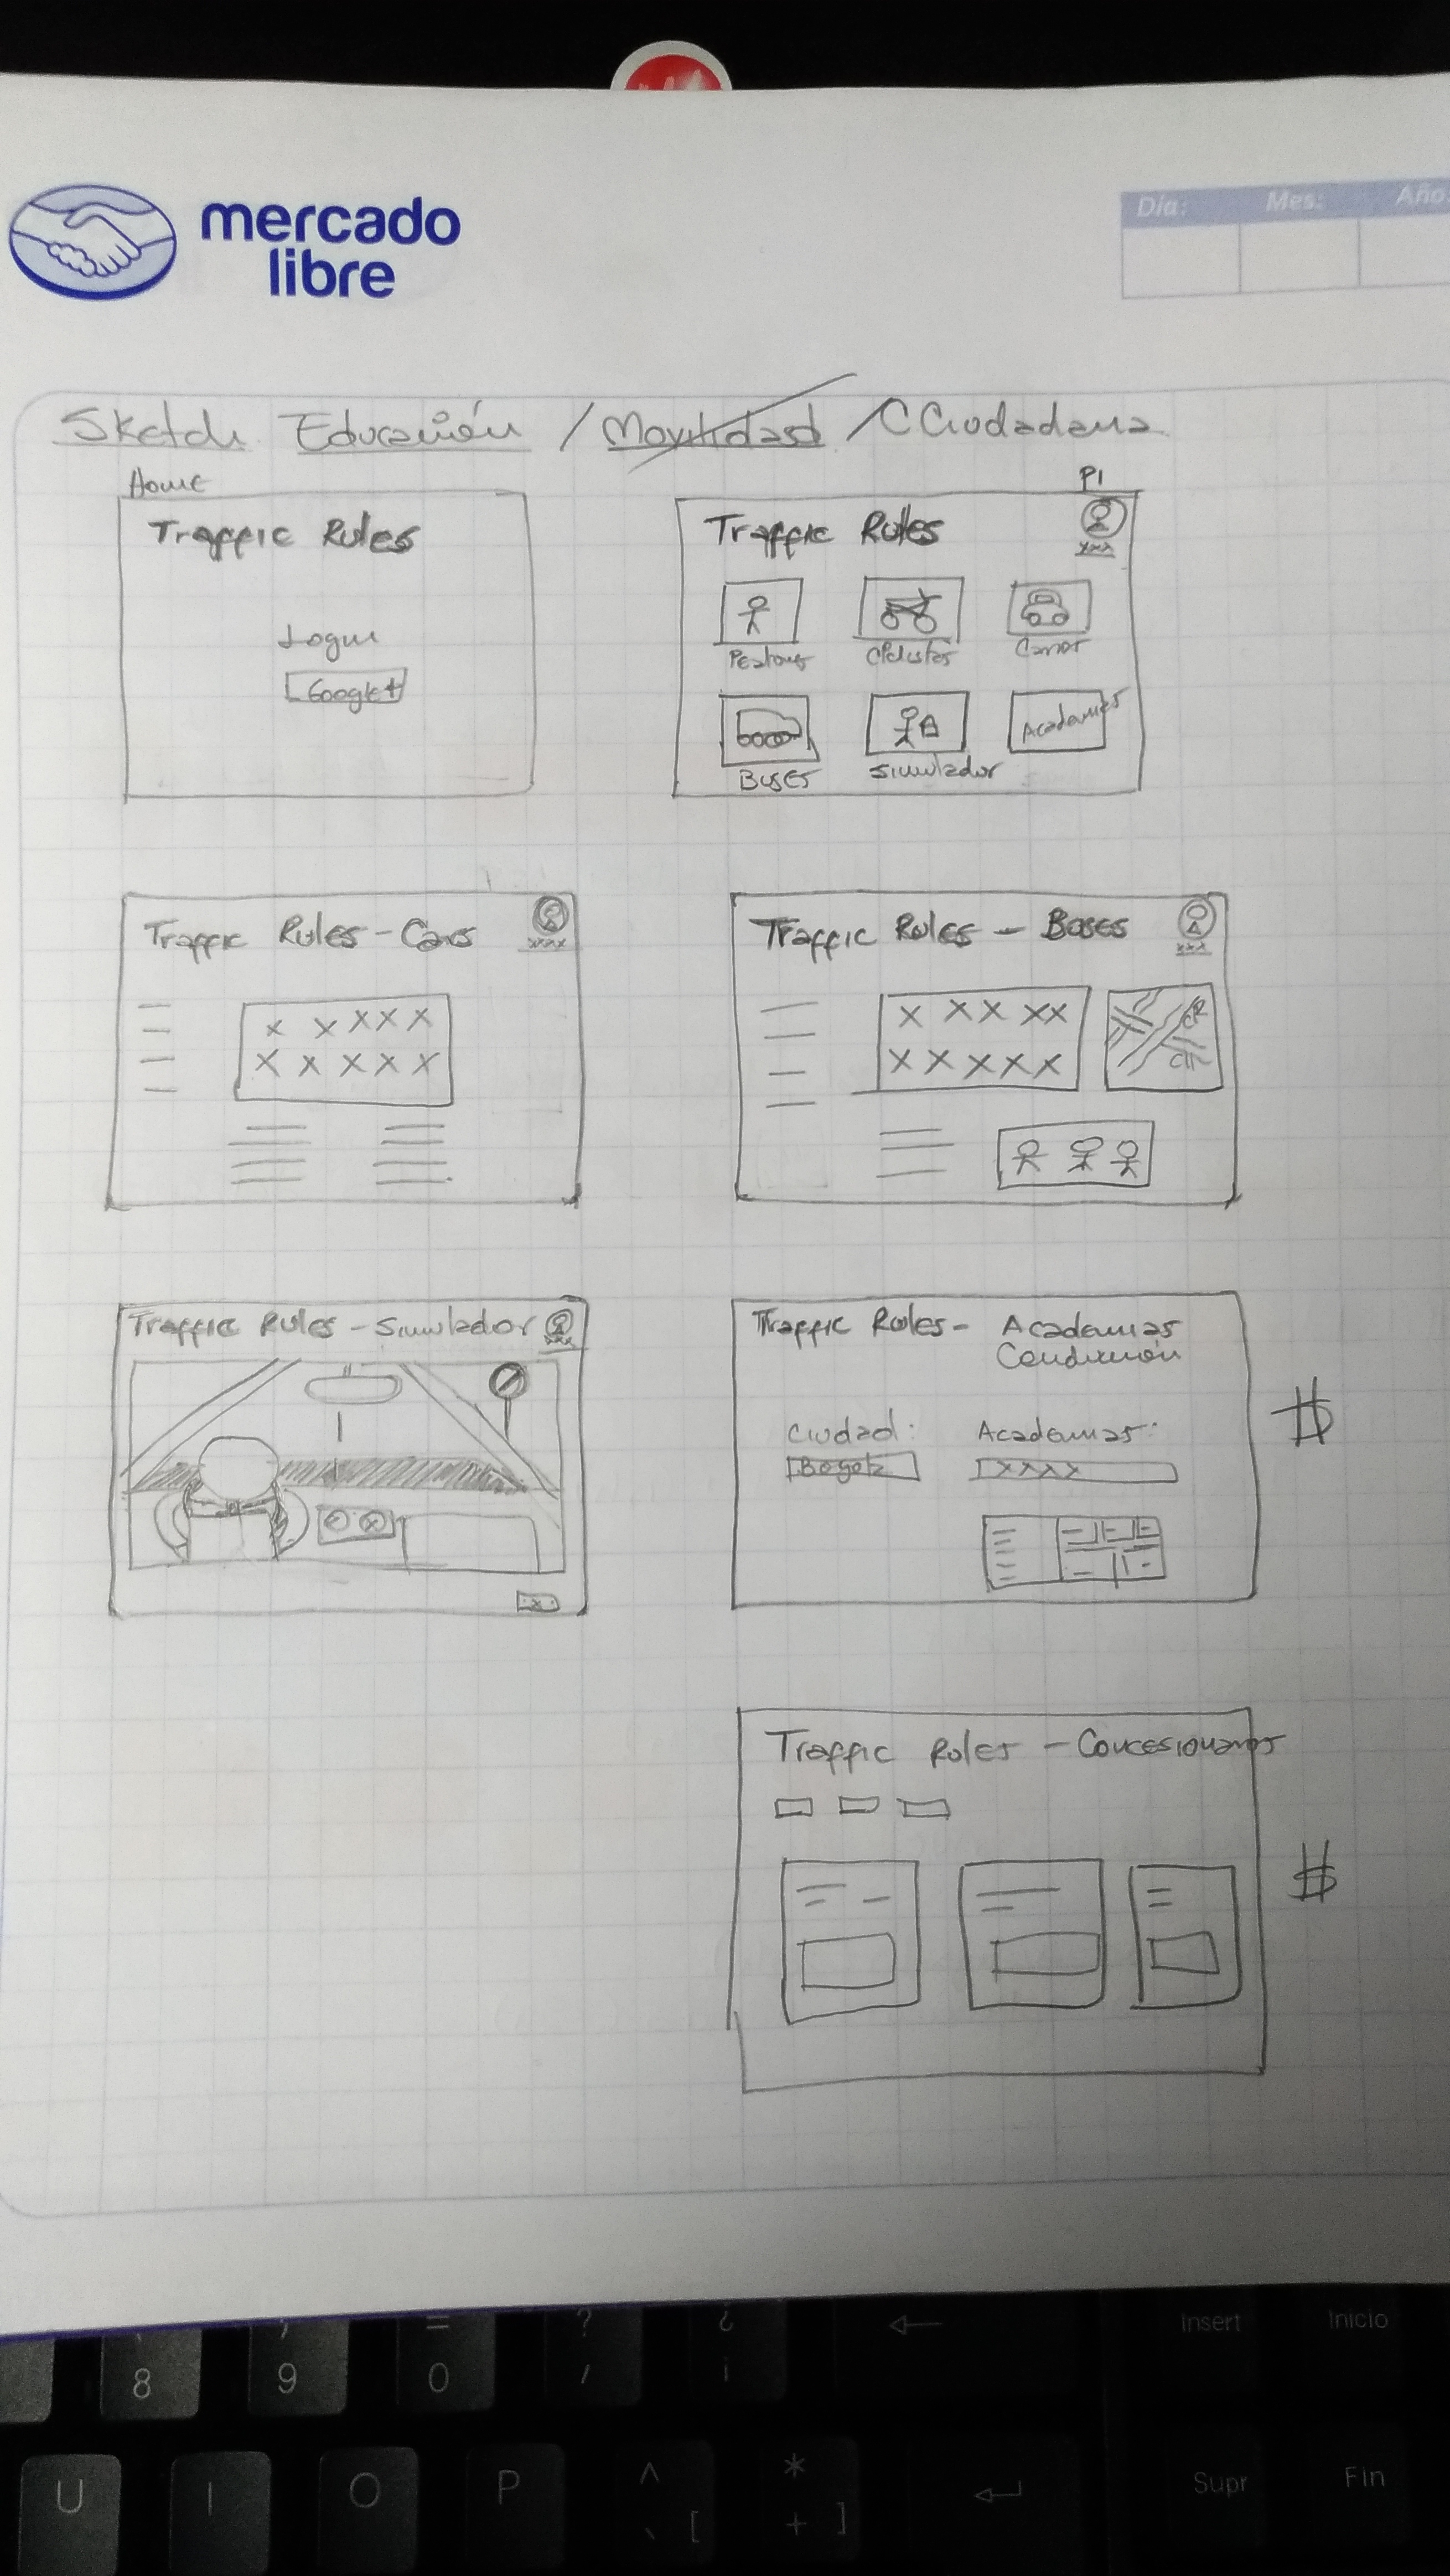 mercado
libre
Día: Mes: Año:
Sketch Educación / Movilidad / CCiudadana
Home
P1
Traffic Rules
Login
Google+
Traffic Rules
xxx
Peatones Ciclistas Carros
Academies
Buses Simulador
Traffic Rules - Cars
xxxx
x x x x x
x x x x x
Traffic Rules - Buses
xxx
x x x x x
x x x x x
CR
Cll
Traffic Rules - Simulador
xxx
x
Traffic Rules - Academias
Conducción
Ciudad: Academias:
Bogota xxxx
$
Traffic Rules - Concesionarios
$
8 9 = 0 ? / ¿ ¡ Insert Inicio
U I O P ^ [ * + ] Supr Fin